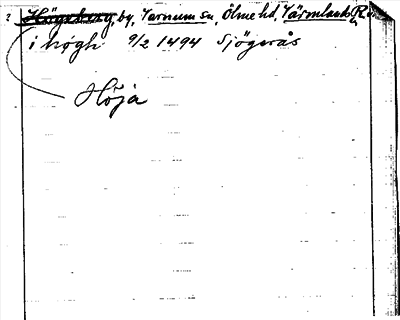 Högsberg, by, Varnum sn, Ölme hd, Värmlands
i högh 9/2 1494 Sjögerås
Höja